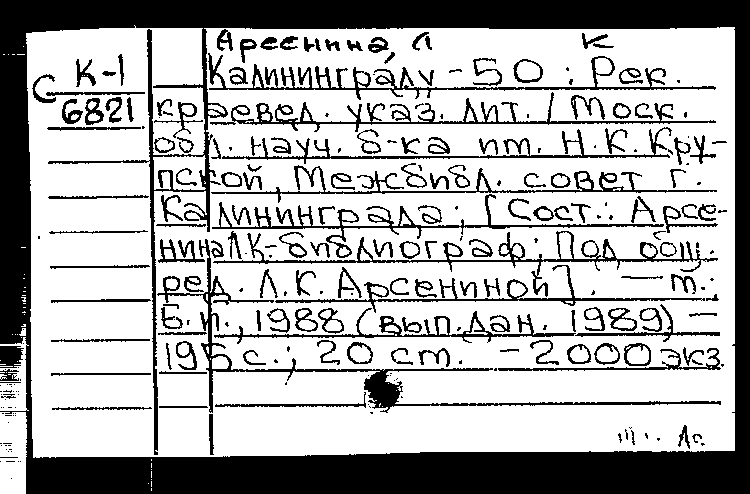 Арсенина, Л К
С К-1
6821
Калининграду - 50 : Рек.
краевед. указ. лит. / Моск.
обл. науч. б-ка им. Н.К. Кру-
пской, Межбибл. совет г.
Калининграда ; [Сост.: Арсе-
нина Л.К-библиограф; Под общ.
ред. Л.К. Арсениной]. — М.:
Б.и., 1988 (вып.дан. 1989) —
195 с.; 20 см. - 2000 экз.